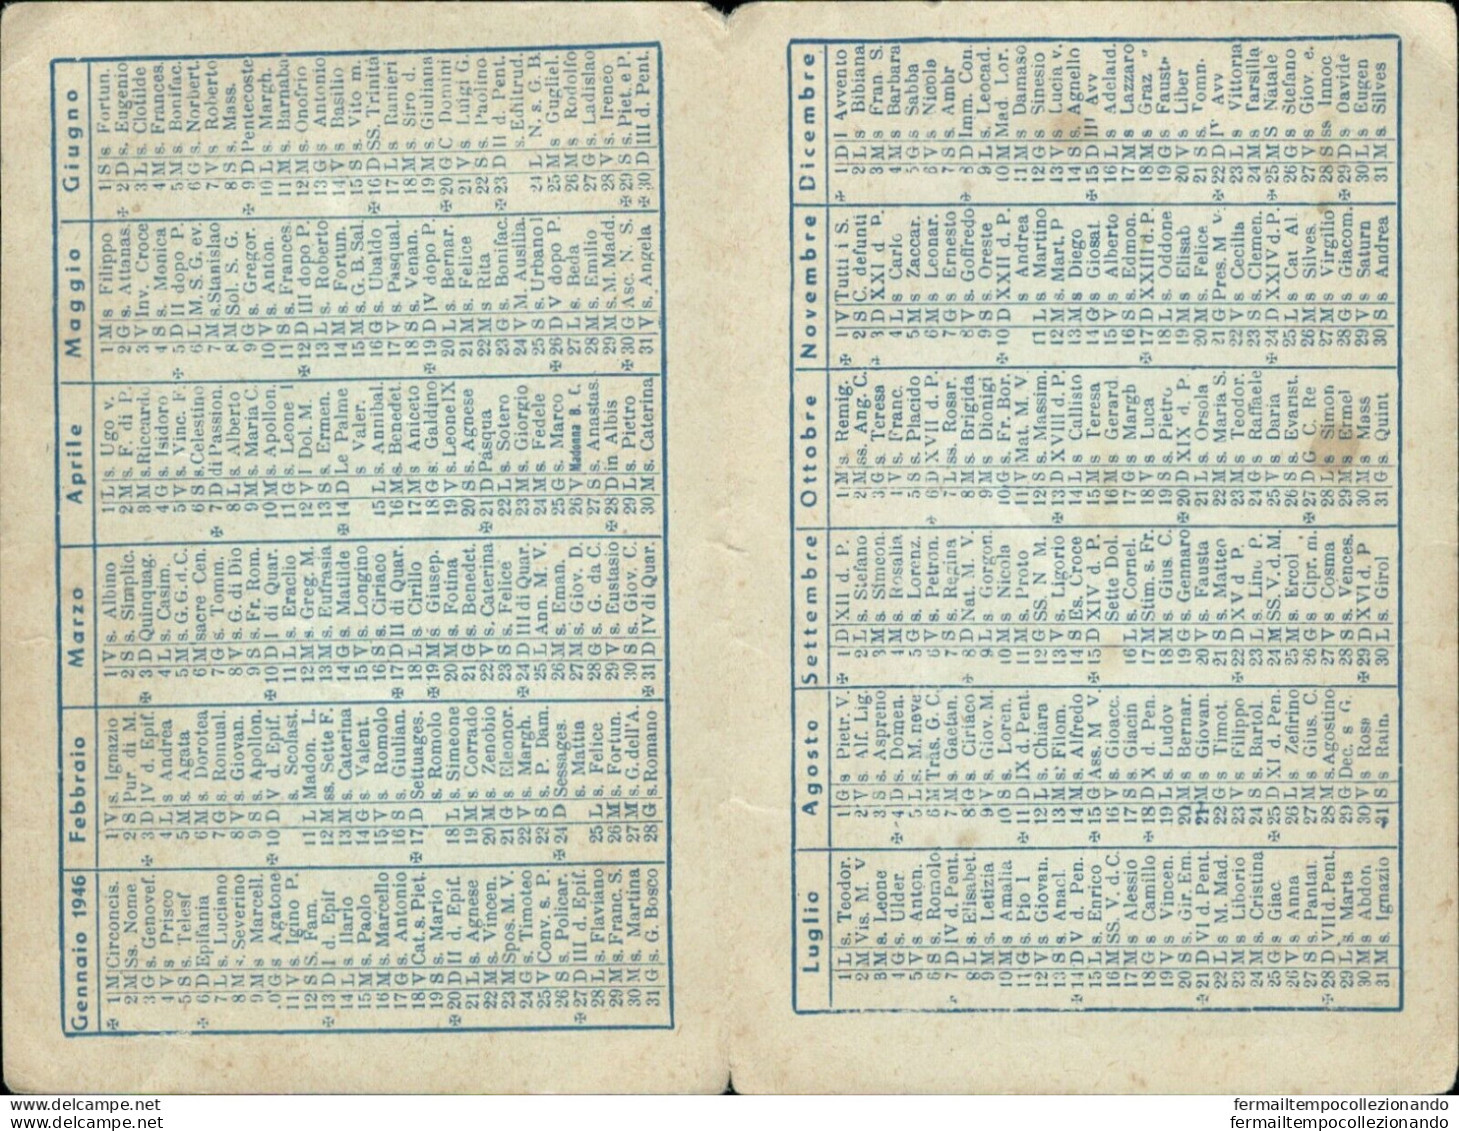 Gennaio 1946
1 M Circoncis.
2 M Ss. Nome.
3 G s. Genovef.
4 V s Prisco
5 S s Telesf
6 D Epifania
7 L s. Luciano
8 M s. Severino
9 M s. Marcell.
10 G s. Agatone
11 V s Igino P.
12 S S. Fam.
13 D I d. Epif
14 L s. Ilario
15 M s Paolo
16 M s Marcello
17 G s. Antonio
18 V Cat. s. Piet.
19 S s. Mario
20 D II d. Epif.
21 L s. Agnese
22 M s. Vincen.
23 M Spos. M. V.
24 G s. Timoteo
25 V Conv. s. P.
26 S s. Policar.
27 D III d. Epif.
28 L s. Flaviano
29 M s. Franc. S.
30 M s. Martina
31 G s. G. Bosco
Febbraio
1 V s. Ignazio
2 S Pur. di M.
3 D IV d. Epif.
4 L s Andrea
5 M s. Agata
6 M s. Dorotea
7 G s. Romual.
8 V s. Giovan.
9 S s. Apollon.
10 D V d. Epif.
11 L s. Madon. L.
12 M ss. Sette F.
13 M s. Caterina
14 G s. Valent.
15 V s. Romolo
16 S s. Giulian.
17 D Settuages.
18 L s. Simeone
19 M s. Corrado
20 M s. Zenobio
21 G s Eleonor.
22 V s. Margh.
23 S s. P. Dam.
24 D Sessages.
25 L s. Felice
26 M s. Fortun.
27 M s. G. dell'A.
28 G s. Romano
Marzo
1 V s. Albino
2 S s. Simplic.
3 D Quinquag.
4 L s. Casim.
5 M s. G. G. d. C.
6 M sacre Cen.
7 G s. Tomm.
8 V s. G. di Dio
9 S s. Fr. Rom.
10 D I di Quar.
11 L s. Eraclio
12 M s. Greg. M.
13 M s. Eufrasia
14 G s. Matilde
15 V s. Longino
16 S s. Ciriaco
17 D II di Quar.
18 L s. Cirillo
19 M s. Giusep.
20 M s. Fotina
21 G s. Benedet.
22 V s. Caterina
23 S s. Felice
24 D III di Quar.
25 L Ann. M. V.
26 M s. Eman.
27 M s. Giov. D.
28 G s. G. da C.
29 V s. Eustasio
30 S s. Giov. C.
31 D IV di Quar.
Aprile
1 L s. Ugo v.
2 M s. F. di P.
3 M s. Riccardo
4 G s. Isidoro
5 V s. Vinc. F.
6 S s. Celestino
7 D di Passion.
8 L s. Alberto
9 M s. Maria C.
10 M s. Apollon.
11 G s. Leone I
12 V Dol. M. V.
13 S s. Ermen.
14 D Le Palme
15 L s. Annibal.
16 M s. Benedet.
17 M s. Aniceto
18 G s. Galdino
19 V s. Leone IX
20 S s. Agnese
21 D Pasqua
22 L s. Sotero
23 M s. Giorgio
24 M s. Fedele
25 G s. Marco
26 V Madonna B. C.
27 S s. Anastas.
28 D in Albis
29 L s. Pietro
30 M s. Caterina
Maggio
1 M s Filippo
2 G s. Attanas.
3 V Inv. Croce
4 S s. Monica
5 D II dopo P.
6 L M. S. G. ev.
7 M s. Stanislao
8 M Sol. S. G.
9 G s. Gregor.
10 V s. Anton.
11 S s. Frances.
12 D III dopo P.
13 L s. Roberto
14 M s. Fortun.
15 M s. G. B. Sal.
16 G s. Ubaldo
17 V s. Pasqual.
18 S s. Venan.
19 D IV dopo P.
20 L s. Bernar.
21 M s. Felice
22 M s Rita
23 G s. Bonifac.
24 V M. Ausilia.
25 S s. Urbano I
26 D V dopo P.
27 L s. Beda
28 M s. Emilio
29 M s. M. Madd.
30 G Asc. N. S.
31 V s. Angela
Giugno
1 S s Fortun.
2 D s. Eugenio
3 L s. Clotilde
4 M s. Frances.
5 M s. Bonifac.
6 G s. Norbert.
7 V s Roberto
8 S s. Mass.
9 D Pentecoste
10 L s. Margh.
11 M s. Barnaba
12 M s. Onofrio
13 G s Antonio
14 V s Basilio
15 S s. Vito m.
16 D SS. Trinità
17 L s. Ranieri
18 M s. Siro d.
19 M s. Giuliana
20 G C Domini
21 V s Luigi G.
22 S s. Paolino
23 D II d. Pent.
s. Ediltrud.
24 L N. s. G. B.
25 M s. Gugliel.
26 M s Rodolfo
27 G s. Ladislao
28 V s. Ireneo
29 S s. Piet. e P.
30 D III d. Pent.
Luglio
1 L s. Teodor.
2 M Vis. M. V
3 M s. Leone
4 G s. Ulder.
5 V s. Anton.
6 S s. Romolo
7 D IV d. Pent.
8 L s. Elisabet.
9 M s. Letizia
10 M s. Amalia
11 G s. Pio I
12 V s Giovan.
13 S s. Anacl.
14 D V d. Pen.
15 L s. Enrico
16 M SS. V. d. C.
17 M s Alessio
18 G s Camillo
19 V s. Vincen.
20 S s. Gir. Em.
21 D VI d. Pent.
22 L s. M. Mad.
23 M s Liborio
24 M s. Cristina
25 G s Giac.
26 V s Anna
27 S s. Pantal.
28 D VII d. Pent.
29 L s. Marta
30 M s Abdon.
31 M s Ignazio
Agosto
1 G s Pietr. V.
2 V s. Alf. Lig.
3 S s. Aspreno
4 D s. Domen.
5 L M. d. neve
6 M Tras. G. C.
7 M s. Gaetan.
8 G s. Ciriaco
9 V s Giov. M.
10 S s. Loren.
11 D IX d. Pent.
12 L s. Chiara
13 M s. Filom.
14 M s. Alfredo
15 G Ass. M V.
16 V s. Gioacc.
17 S s. Giacin
18 D X d. Pen.
19 L s. Ludov
20 M s Bernar.
21 M s. Giovan.
22 G s. Timot.
23 V s Filippo
24 S s. Bartol.
25 D XI d. Pen.
26 L s. Zefirino
27 M s. Gius. C.
28 M s. Agostino
29 G Dec. s G.
30 V s Rosa
31 S s Rain.
Settembre
1 D XII d. P.
2 L s. Stefano
3 M s. Simeon.
4 M s. Rosalia
5 G s. Lorenz.
6 V s. Petron.
7 S s. Regina
8 D Nat. M. V.
9 L s Gorgon.
10 M s Nicola
11 M s. Proto
12 G SS. N M.
13 V s. Ligorio
14 S Es. Croce
15 D XIV d. P.
Sette Dol.
16 L s. Cornel.
17 M Stim. s. Fr.
18 M s. Gius. C.
19 G s. Gennaro
20 V s. Fausta
21 S s. Matteo
22 D XV d P.
23 L s. Lino P.
24 M SS. V. d. M.
25 M s. Ercol
26 G s. Cipr. m.
27 V s. Cosma
28 S s. Vences.
29 D XVI d. P
30 L s. Girol
Ottobre
1 M s. Remig.
2 M ss. Ang. C.
3 G s. Teresa
4 V s. Franc.
5 S s. Placido
6 D XVII d. P.
7 L ss. Rosar.
8 M s. Brigida
9 M s. Dionigi
10 G s. Fr. Bor.
11 V Mat. M. V.
12 S s. Massim.
13 D XVIII d. P.
14 L s. Callisto
15 M s Teresa
16 M s Gerard.
17 G s. Margh
18 V s Luca
19 S s. Pietro
20 D XIX d. P.
21 L s. Orsola
22 M s. Maria S.
23 M s. Teodor.
24 G s. Raffaele
25 V s. Daria
26 S s. Evarist.
27 D G. C. Re
28 L s. Simon
29 M s. Ermel
30 M s Mass
31 G s. Quint
Novembre
1 V Tutti i S.
2 S C. defunti
3 D XXI d. P.
4 L s Carlo
5 M s. Zaccar.
6 M s Leonar.
7 G s. Ernesto
8 V s. Goffredo
9 S s. Oreste
10 D XXII d. P.
s Andrea
11 L s. Martino
12 M s. Mart. P
13 M s. Diego
14 G s. Giosaf.
15 V s. Alberto
16 S s. Edmon.
17 D XXIII d. P.
18 L s. Oddone
19 M s. Elisab
20 M s. Felice
21 G Pres. M v.
22 V s Cecilia
23 S s. Clemen.
24 D XXIV d. P.
25 L s Cat Al
26 M s. Silves.
27 M s Virgilio
28 G s Giacom.
29 V s Saturn
30 S s Andrea
Dicembre
1 D I Avvento
2 L s Bibiana
3 M s Fran. S.
4 M s Barbara
5 G s Sabba
6 V s Nicolò
7 S s. Ambr
8 D Imm. Con.
9 L s. Leocad.
10 M Mad. Lor.
11 M s Damaso
12 G s Sinesio
13 V s. Lucia v.
14 S s. Agnello
15 D III Avv
16 L s. Adelaid.
17 M s Lazzaro
18 M s Graz
19 G s. Faust
20 V s Liber
21 S s Tomm.
22 D IV Avv
23 L s. Vittoria
24 M s. Tarsilla
25 M S Natale
26 G s Stefano
27 V s. Giov. e.
28 S ss Innoc
29 D s Davide
30 L s Eugen
31 M s Silves
fermailtempocollezionando
fermailtempocollezionando